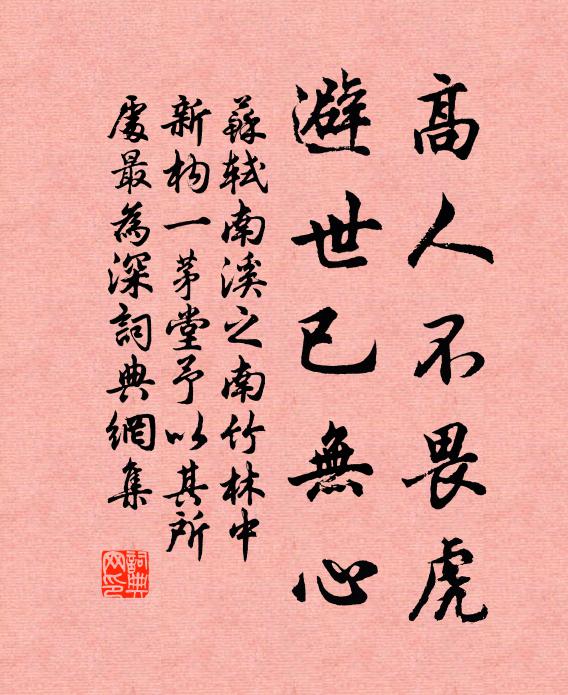 高人不畏虎
避世已無心
蘇軾南溪之南竹林中
新构一茅堂予以其所
處最為深詞典網集
詞典
网印